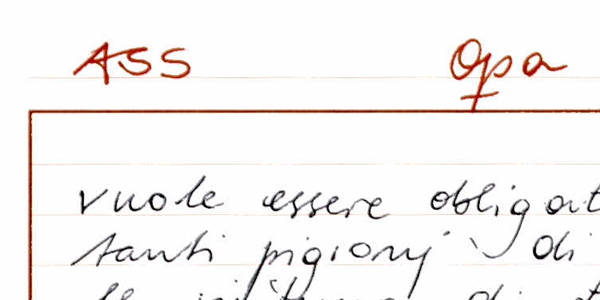 ASS Opa
vuole essere obligat
tanti pigionj di